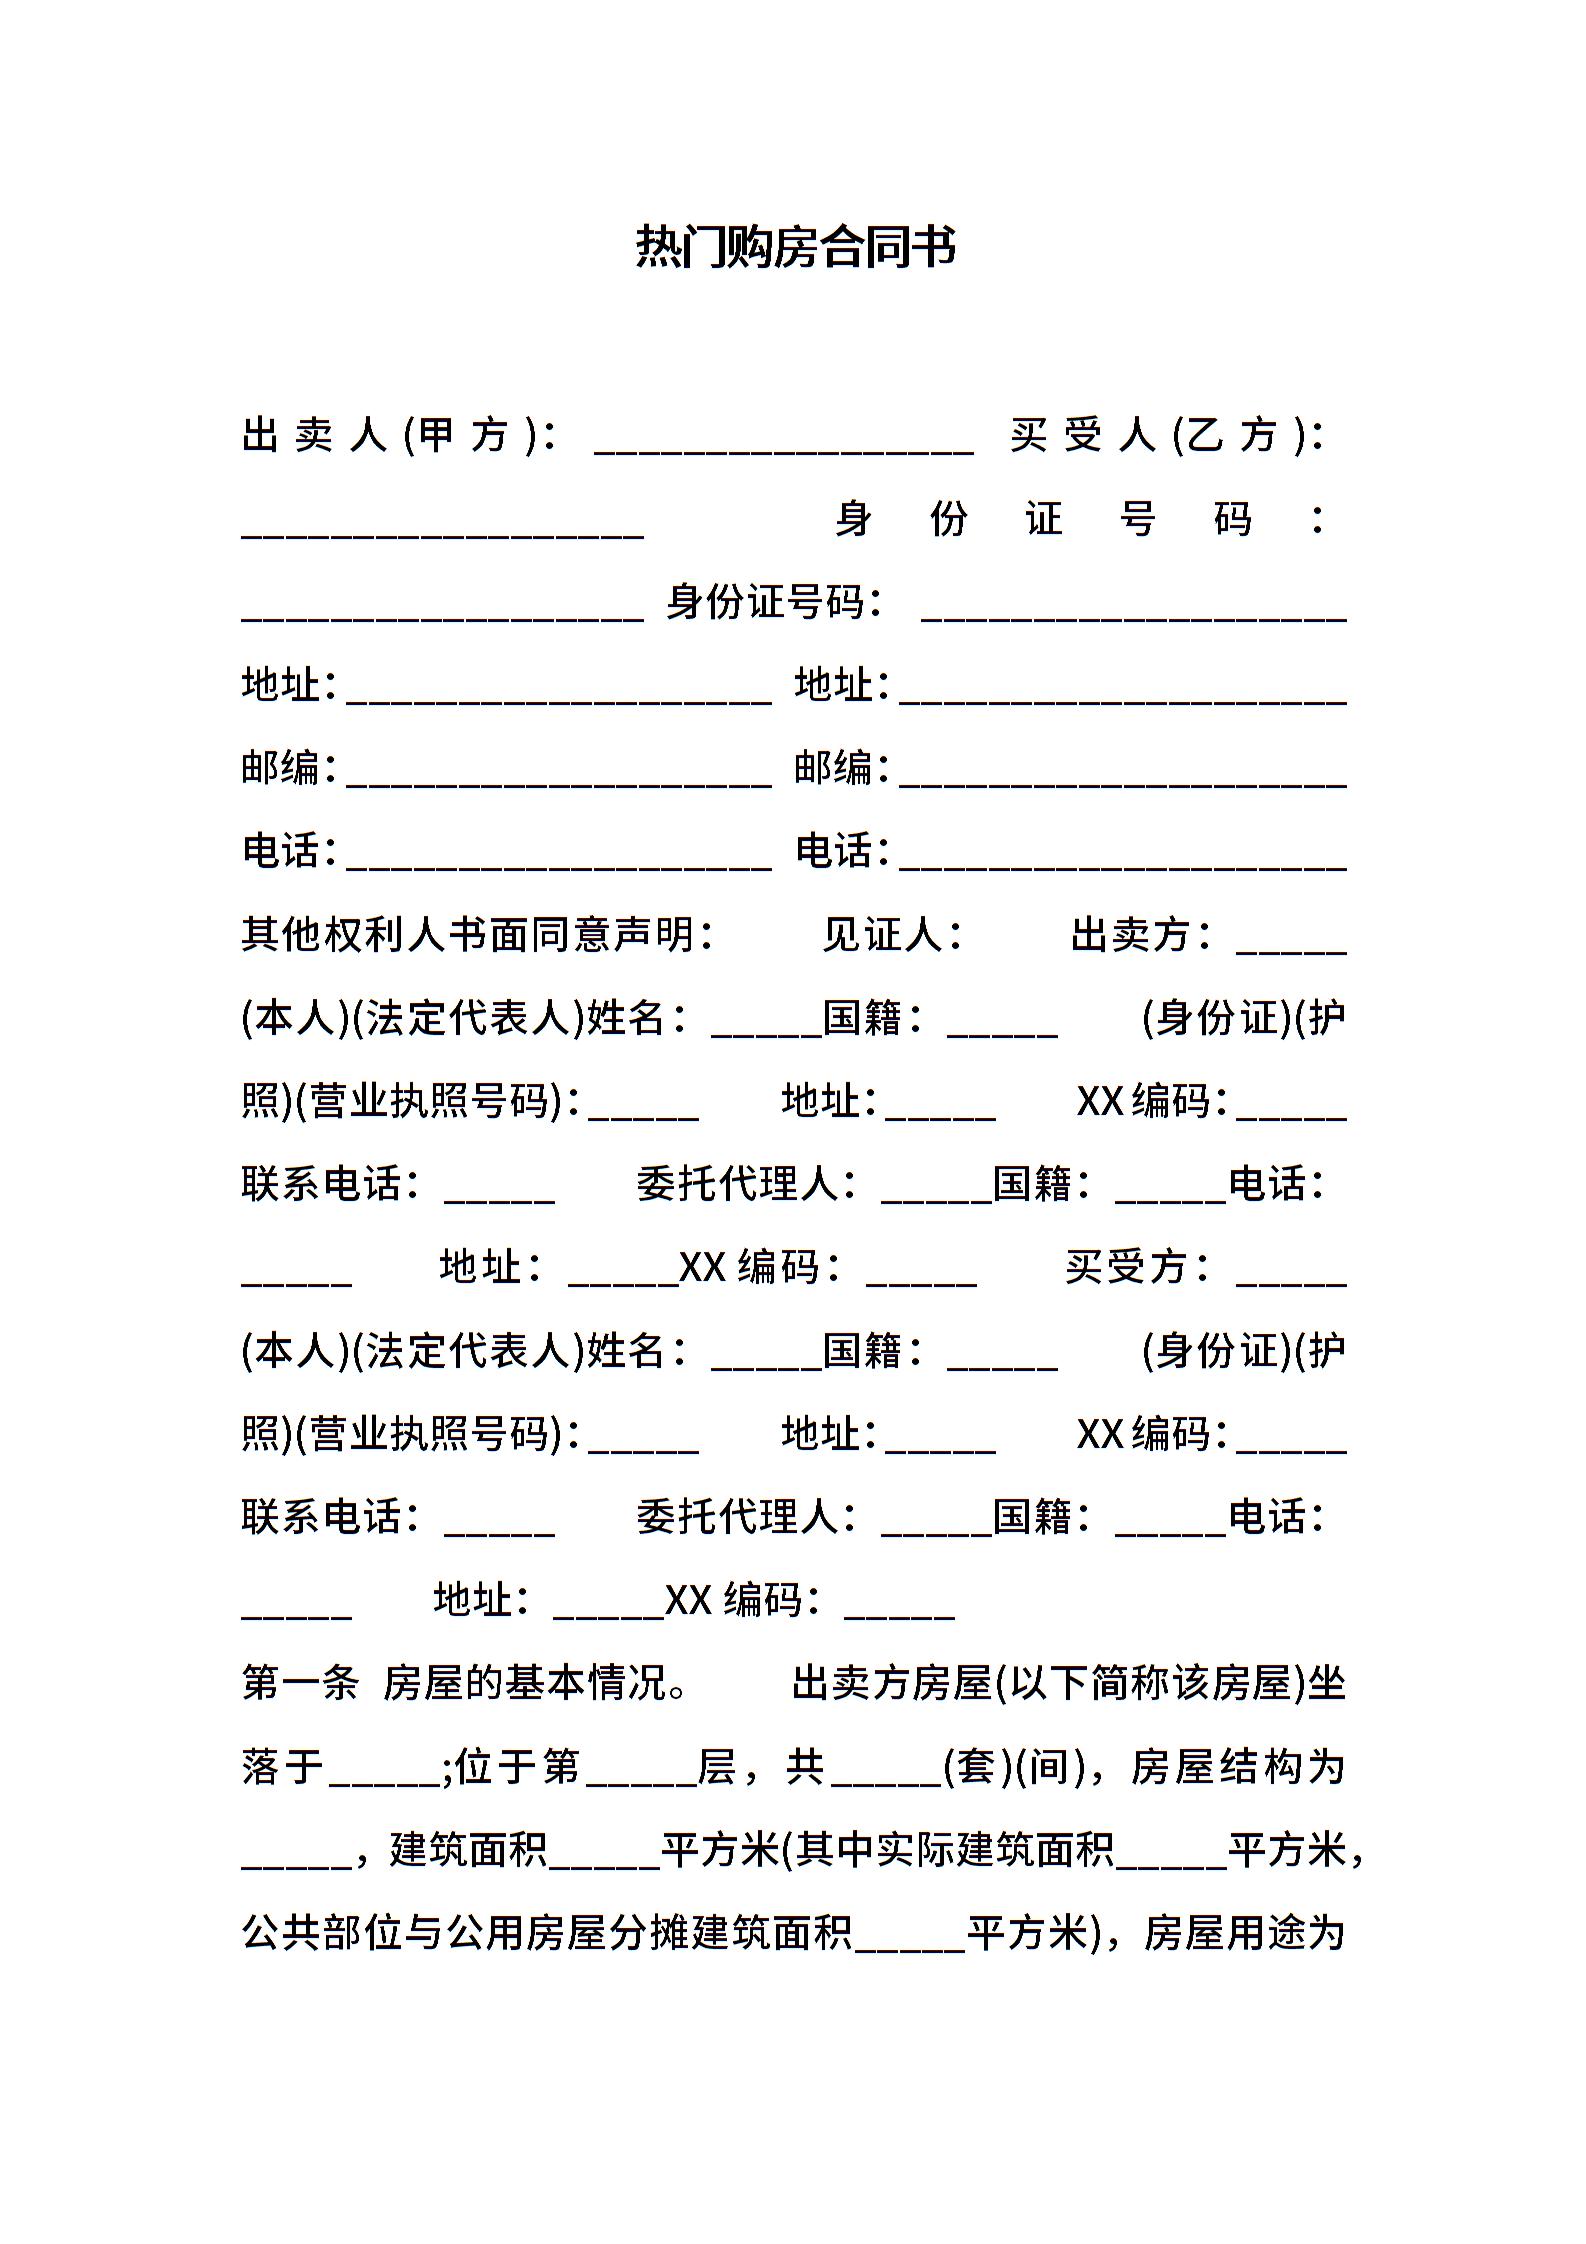 热门购房合同书
出卖人(甲方)： _________________ 买受人(乙方)：
__________________ 身份证号码：
__________________ 身份证号码： ___________________
地址：___________________ 地址：____________________
邮编：___________________ 邮编：____________________
电话：___________________ 电话：____________________
其他权利人书面同意声明： 见证人： 出卖方：_____
(本人)(法定代表人)姓名：_____国籍：_____ (身份证)(护
照)(营业执照号码)：_____ 地址：_____ XX编码：_____
联系电话：_____ 委托代理人：_____国籍：_____电话：
_____ 地址：_____XX 编码：_____ 买受方：_____
(本人)(法定代表人)姓名：_____国籍：_____ (身份证)(护
照)(营业执照号码)：_____ 地址：_____ XX编码：_____
联系电话：_____ 委托代理人：_____国籍：_____电话：
_____ 地址：_____XX 编码：_____
第一条 房屋的基本情况。 出卖方房屋(以下简称该房屋)坐
落于_____;位于第_____层，共_____(套)(间)，房屋结构为
_____，建筑面积_____平方米(其中实际建筑面积_____平方米，
公共部位与公用房屋分摊建筑面积_____平方米)，房屋用途为